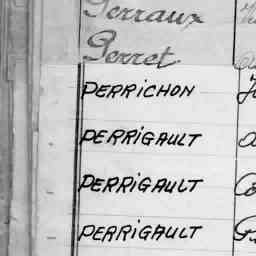 Perraux
Perret
PERRICHON
PERRIGAULT
PERRIGAULT
PERRIGAULT